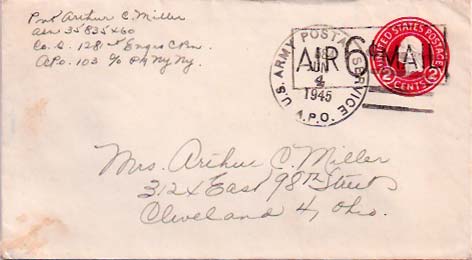 Pvt Arthur C. Miller
asn 35835460
Co. B. 128th Engrs C Bn.
A.P.O. 103 c/o PM NY Ny.
U.S. ARMY POSTAL SERVICE
JUN
4
1945
A.P.O.
AIR 6¢ MAIL
UNITED STATES POSTAGE
2 CENTS 2
Mrs. Arthur C. Miller
312 East 98th Street
Cleveland 4, Ohio.